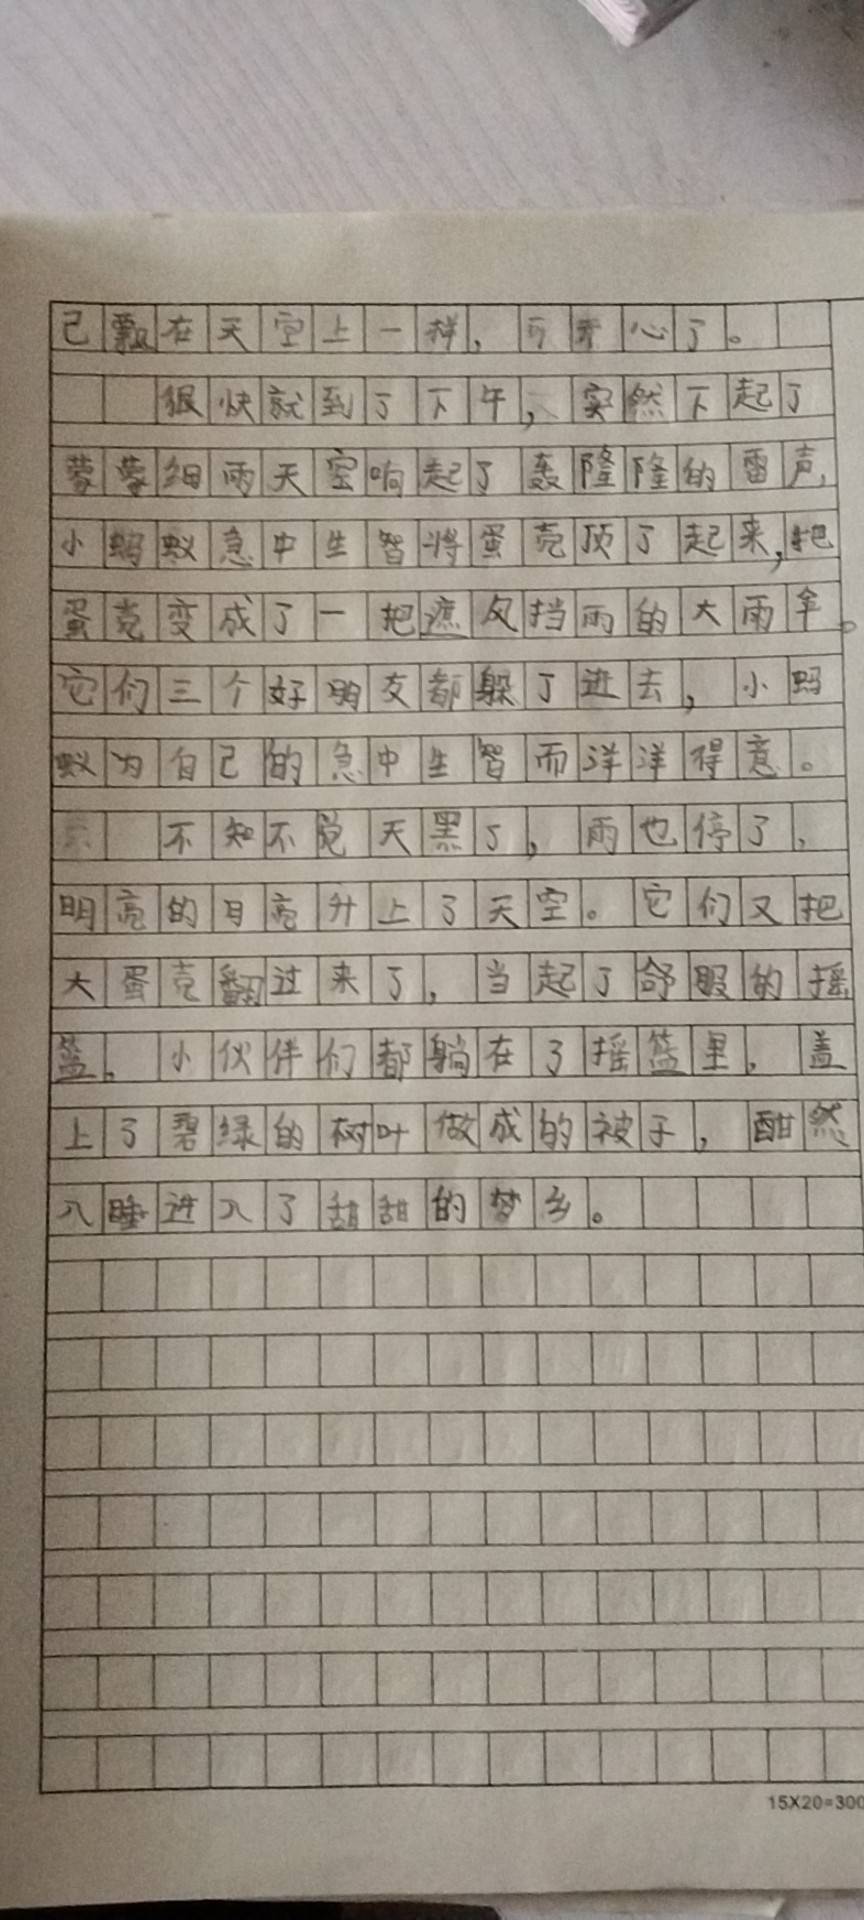 己飘在天空上一样，可开心了。
很快就到了下午，突然下起了
蒙蒙细雨天空响起了轰隆隆的雷声，
小蚂蚁急中生智将蛋壳顶了起来，把
蛋壳变成了一把遮风挡雨的大雨伞。
它们三个好朋友都躲了进去，小蚂
蚁为自己的急中生智而洋洋得意。
不知不觉天黑了，雨也停了，
明亮的月亮升上了天空。它们又把
大蛋壳翻过来了，当起了舒服的摇
篮。小伙伴们都躺在了摇篮里，盖
上了碧绿的树叶做成的被子，酣然
入睡进入了甜甜的梦乡。
15X20=300